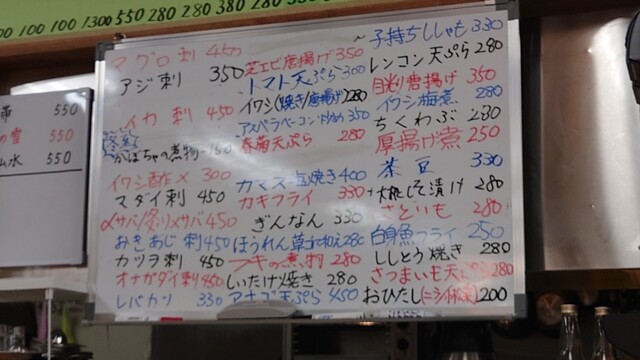 100 100 1300 550 280 280 380 280 280
550
の雪 550
山水 550
マグロ刺 450
アジ刺 350
イカ刺 450
かぼちゃの煮物
イワシ酢〆 300
マダイ刺 450
〆サバ/炙り〆サバ 450
おきあじ刺 450
カツヲ刺 450
オナガダイ刺 450
レバカツ 330
芝エビ唐揚げ 350
トマト天ぷら 300
イワシ(焼き/唐揚げ) 280
アスパラベーコン
春菊天ぷら 280
カマス塩焼き 400
カキフライ 330
ぎんなん 330
ほうれん草ごま和え 280
フキの煮物 280
しいたけ焼き 280
アナゴ天ぷら 450
子持ちししゃも 330
レンコン天ぷら 280
目光り唐揚げ 350
イワシ梅煮 280
ちくわぶ 280
厚揚げ煮 250
茶豆 330
大根しそ漬け 280
さといも 280
白身魚フライ 250
ししとう焼き 280
さつまいも天ぷら 280
おひたし 200